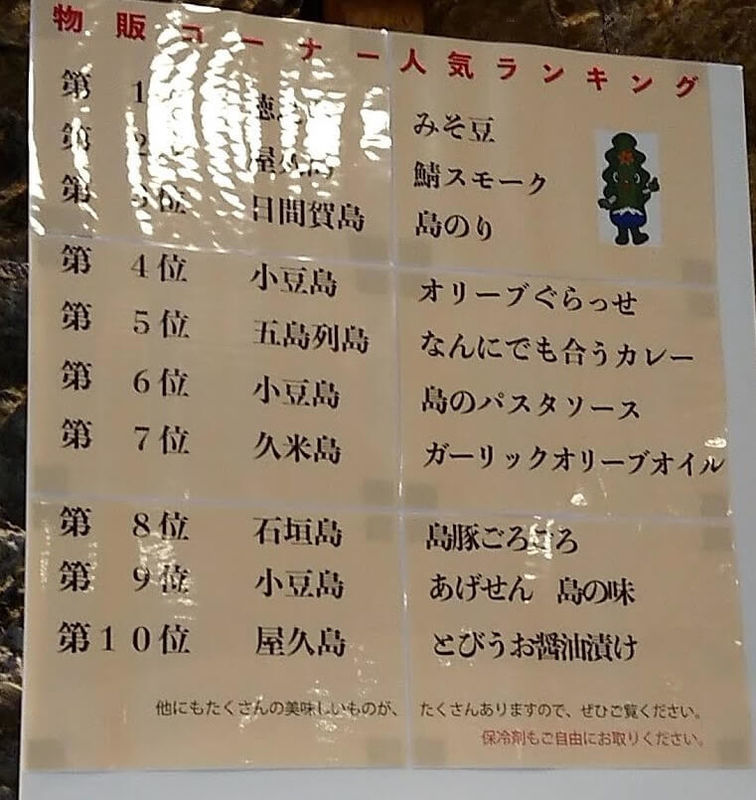 物販コーナー人気ランキング
第1 徳之島 みそ豆
第2 屋久島 鯖スモーク
第3位 日間賀島 島のり
第4位 小豆島 オリーブぐらっせ
第5位 五島列島 なんにでも合うカレー
第6位 小豆島 島のパスタソース
第7位 久米島 ガーリックオリーブオイル
第8位 石垣島 島豚ごろごろ
第9位 小豆島 あげせん 島の味
第10位 屋久島 とびうお醤油漬け
他にもたくさんの美味しいものが、 たくさんありますので、ぜひご覧ください。
保冷剤もご自由にお取りください。